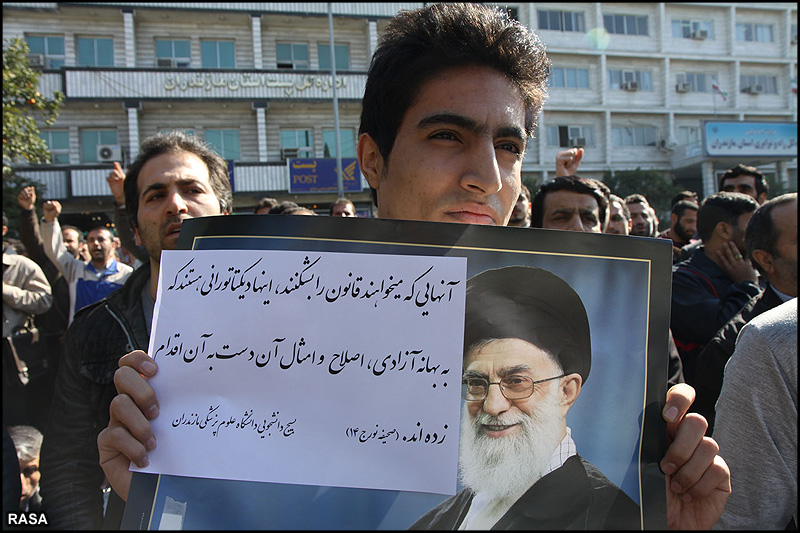 اداره کل پست استان مازندران
POST
آنهایی که میخواهند قانون را بشکنند، اینها دیکتاتورانی هستند که
به بهانه آزادی، اصلاح و امثال آن دست به آن اقدام
زده اند. (صحیفه نور ج ۱۴)
بسیج دانشجویی دانشگاه علوم پزشکی مازندران
RASA